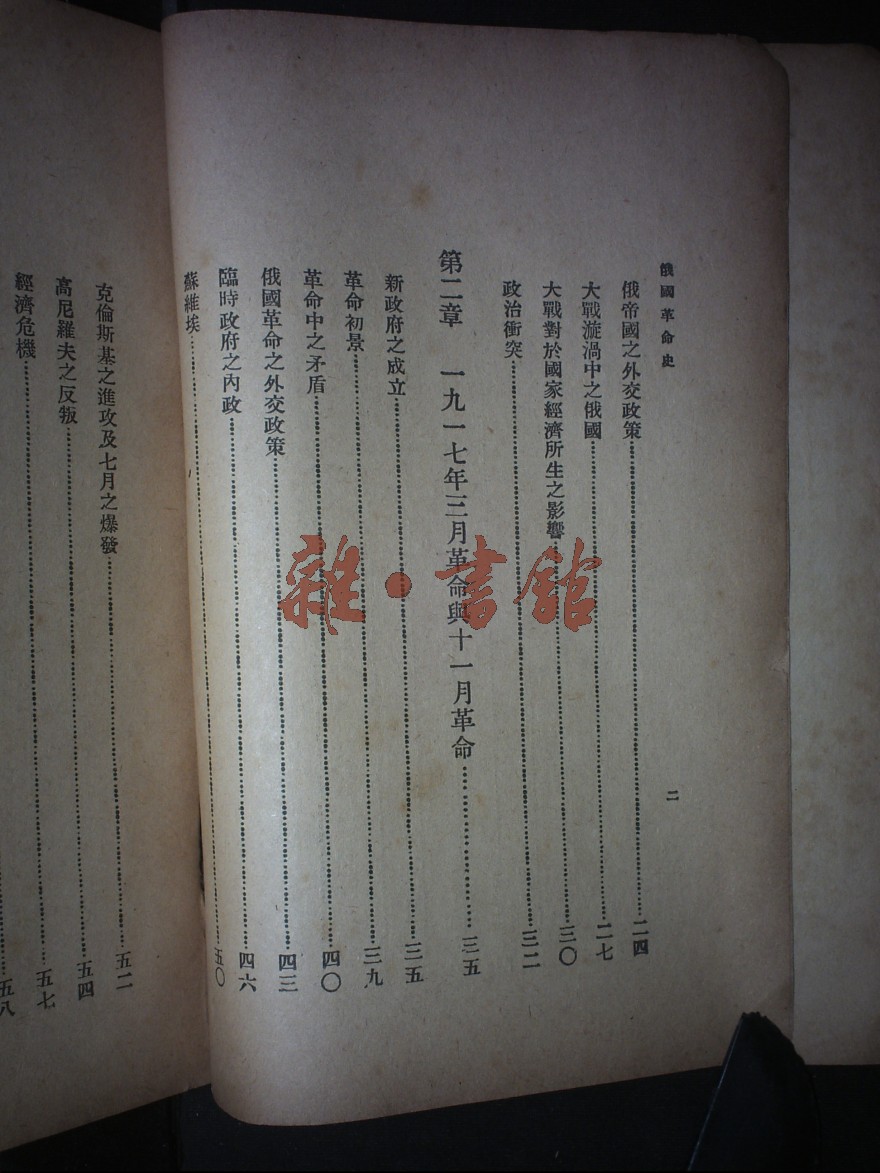 俄國革命史
二
俄帝國之外交政策……二四
大戰漩渦中之俄國……二七
大戰對於國家經濟所生之影響……三〇
政治衝突……三二
第二章 一九一七年三月革命與十一月革命……三五
新政府之成立……三五
革命初景……三九
革命中之矛盾……四〇
俄國革命之外交政策……四三
臨時政府之內政……四六
蘇維埃……五〇
克倫斯基之進攻及七月之爆發……五二
高尼羅夫之反叛……五四
經濟危機……五七
五八
雜·書館